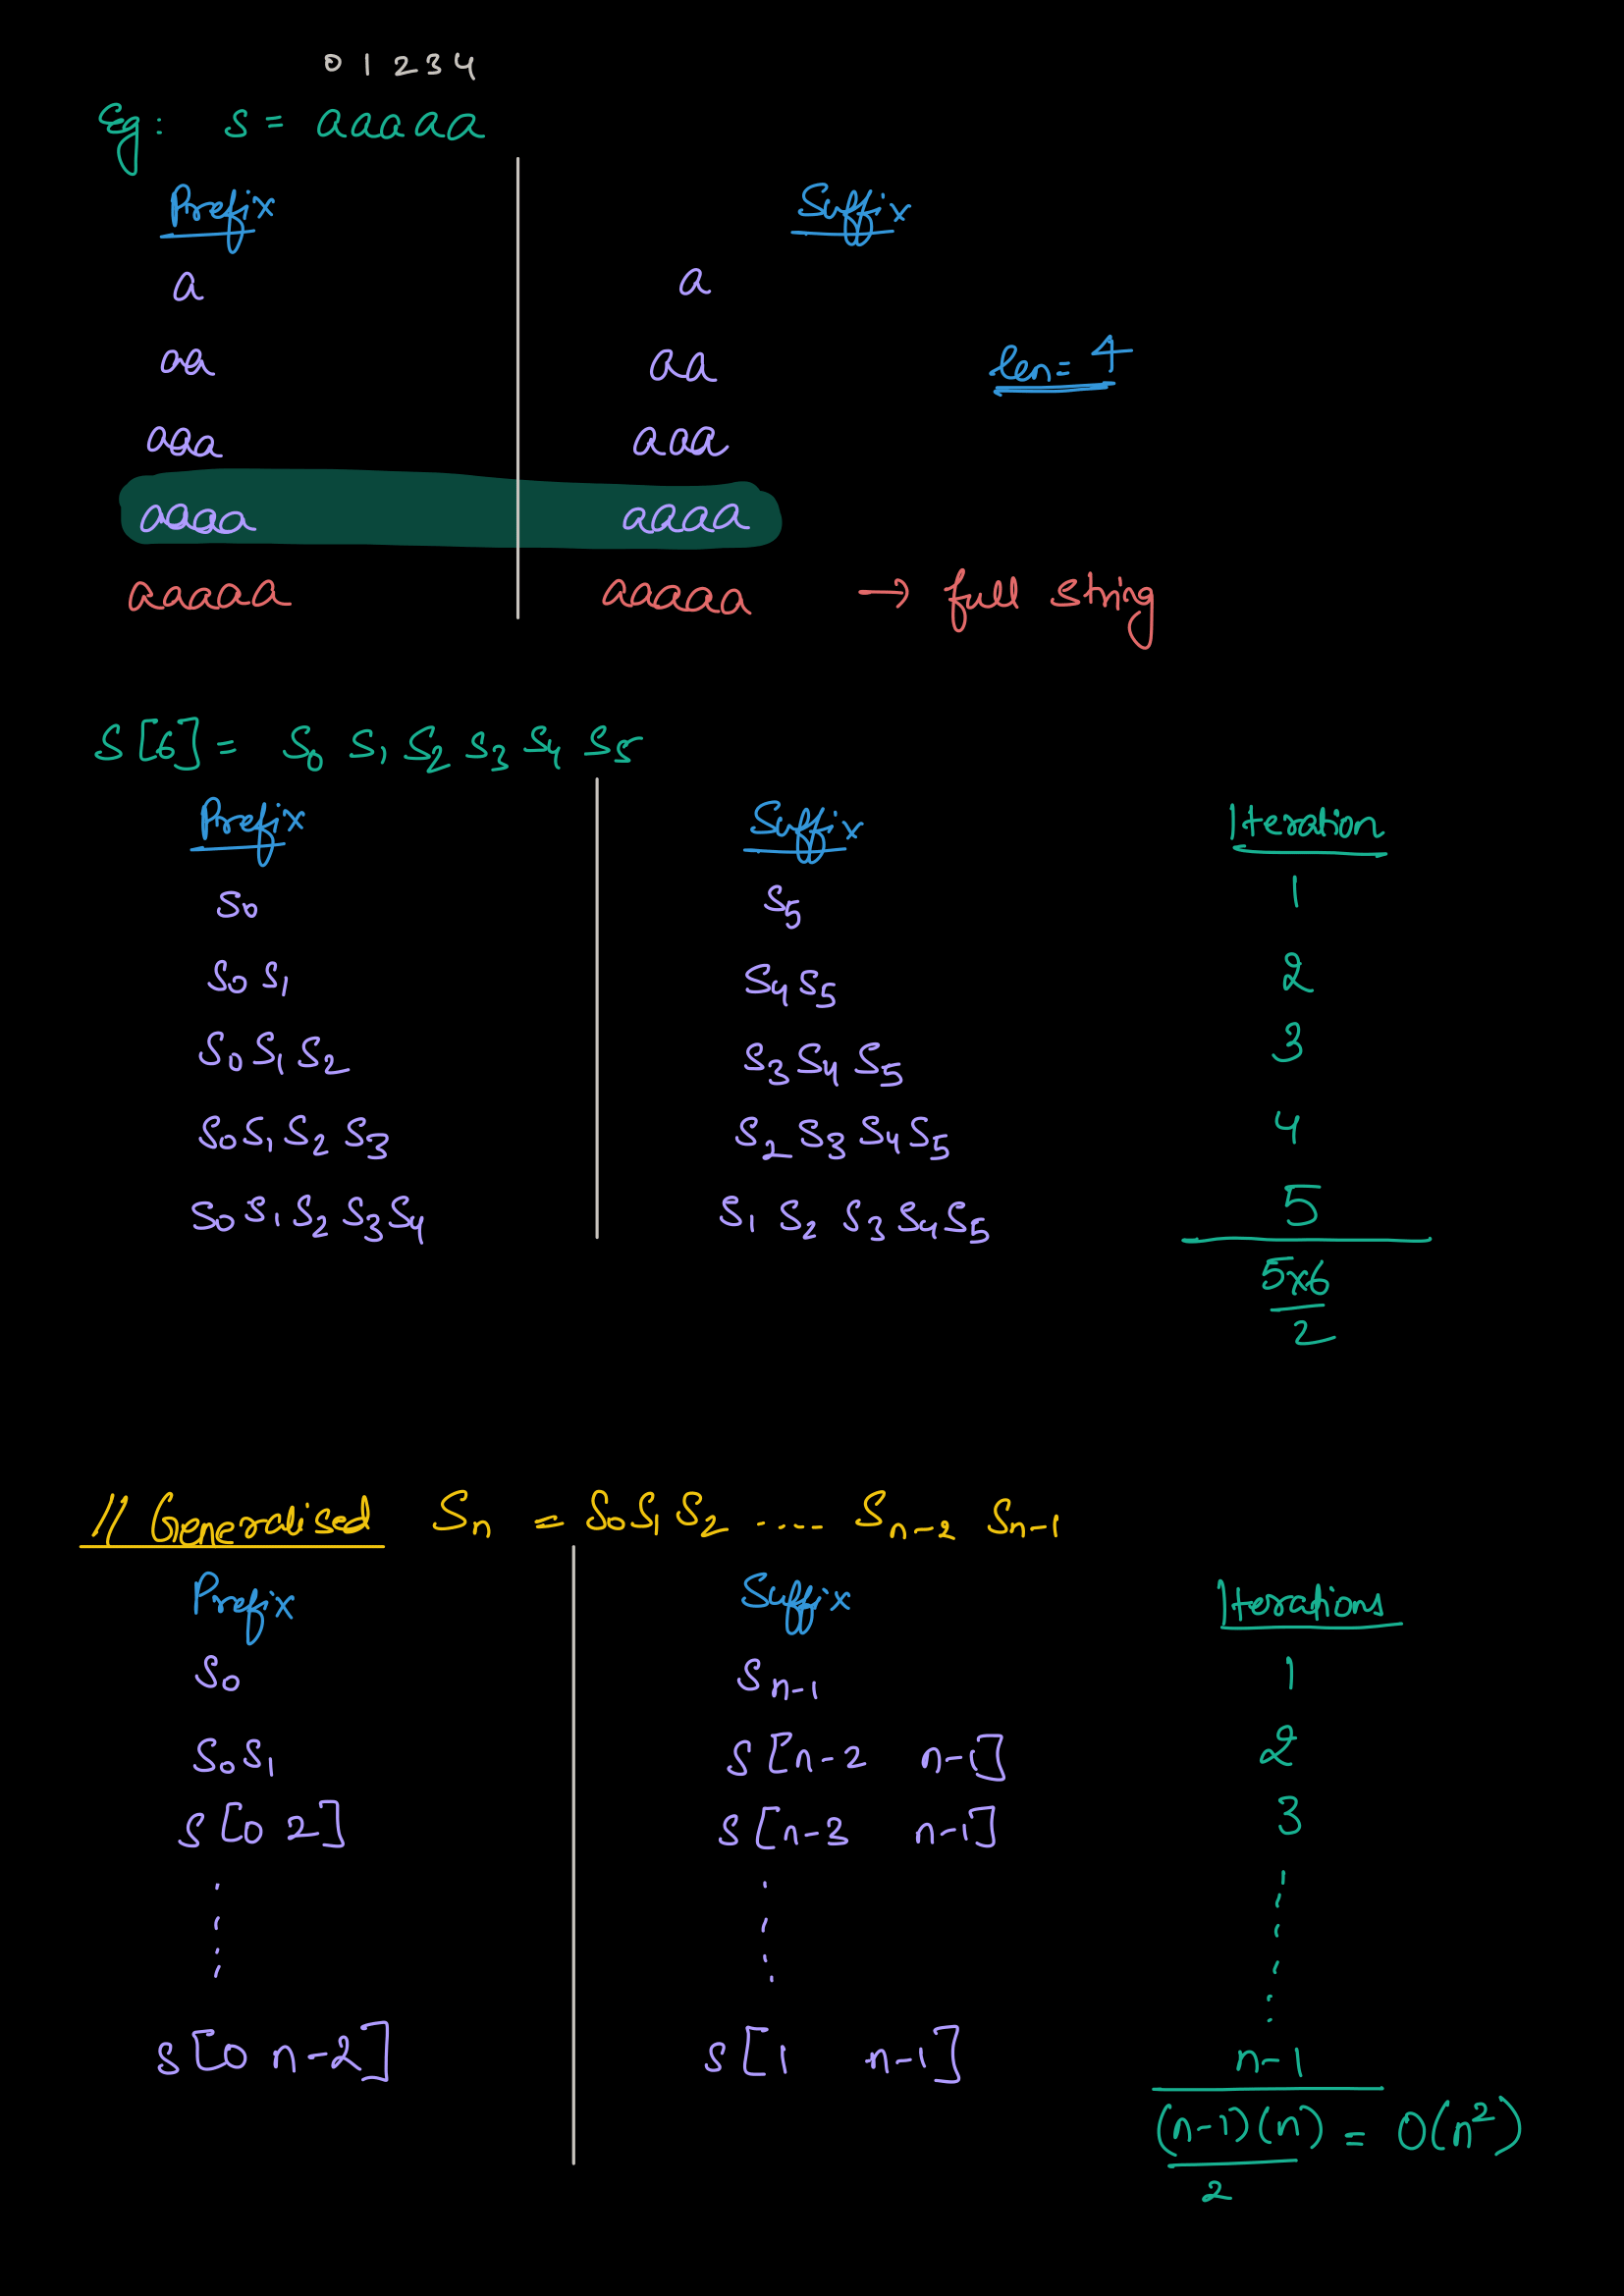 0 1 2 3 4
Eg: s = aaaaa
Prefix Suffix
a a
aa aa len = 4
aaa aaa
aaaa aaaa
aaaaa aaaaa → full string
S[6] = S₀ S₁ S₂ S₃ S₄ S₅
Prefix Suffix Iteration
S₀ S₅ 1
S₀ S₁ S₄ S₅ 2
S₀ S₁ S₂ S₃ S₄ S₅ 3
S₀ S₁ S₂ S₃ S₂ S₃ S₄ S₅ 4
S₀ S₁ S₂ S₃ S₄ S₁ S₂ S₃ S₄ S₅ 5
5x6
2
// Generalised Sₙ = S₀ S₁ S₂ ..... Sₙ₋₂ Sₙ₋₁
Prefix Suffix Iterations
S₀ Sₙ₋₁ 1
S₀ S₁ S[n-2 n-1] 2
S[0 2] S[n-3 n-1] 3
S[0 n-2] S[1 n-1] n-1
(n-1)(n) = O(n²)
2